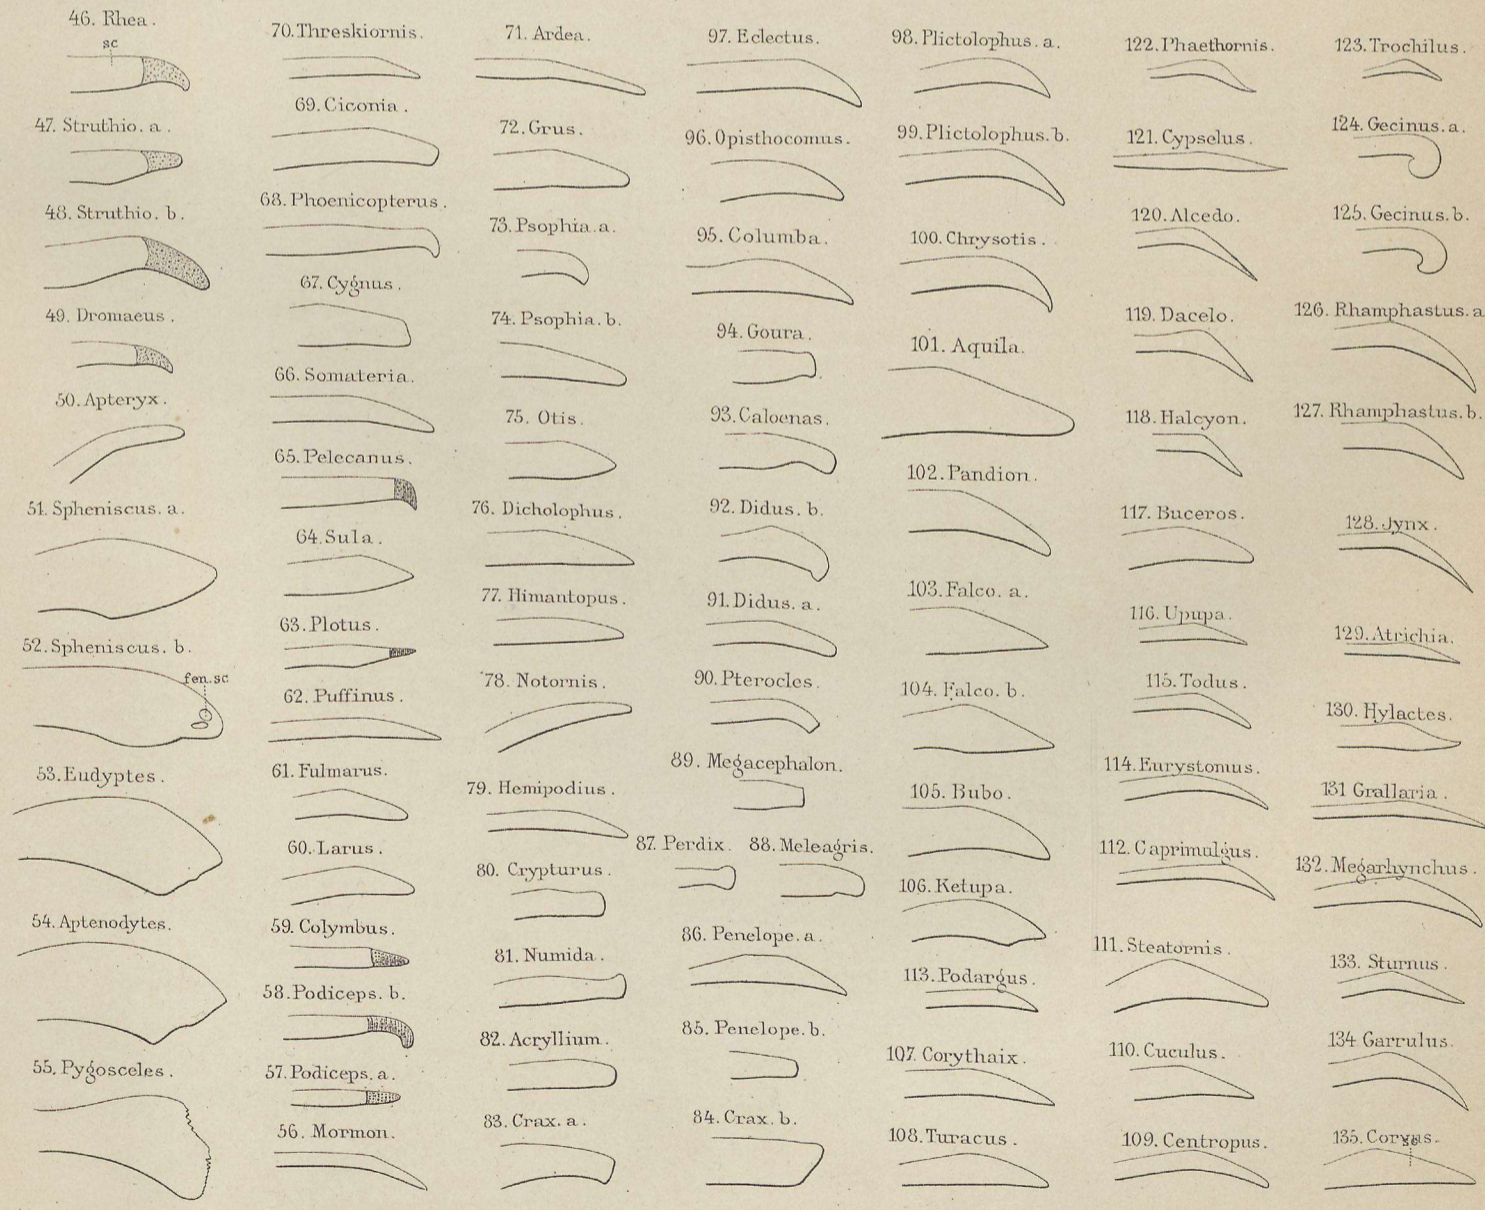 46. Rhea.
sc
47. Struthio. a.
48. Struthio. b.
49. Dromaeus.
50. Apteryx.
51. Spheniscus. a.
52. Spheniscus. b.
fen. sc
53. Eudyptes.
54. Aptenodytes.
55. Pygosceles.
70. Threskiornis.
69. Ciconia.
68. Phoenicopterus.
67. Cygnus.
66. Somateria.
65. Pelecanus.
64. Sula.
63. Plotus.
62. Puffinus.
61. Fulmarus.
60. Larus.
59. Colymbus.
58. Podiceps. b.
57. Podiceps. a.
56. Mormon.
71. Ardea.
72. Grus.
73. Psophia. a.
74. Psophia. b.
75. Otis.
76. Dicholophus.
77. Himantopus.
78. Notornis.
79. Hemipodius.
80. Crypturus.
81. Numida.
82. Acryllium.
83. Crax. a.
97. Eclectus.
96. Opisthocomus.
95. Columba.
94. Goura.
93. Caloenas.
92. Didus. b.
91. Didus. a.
90. Pterocles.
89. Megacephalon.
87. Perdix.
88. Meleagris.
86. Penelope. a.
85. Penelope. b.
84. Crax. b.
98. Plictolophus. a.
99. Plictolophus. b.
100. Chrysotis.
101. Aquila.
102. Pandion.
103. Falco. a.
104. Falco. b.
105. Bubo.
106. Ketupa.
113. Podargus.
107. Corythaix.
108. Turacus.
122. Phaethornis.
121. Cypselus.
120. Alcedo.
119. Dacelo.
118. Halcyon.
117. Buceros.
116. Upupa.
115. Todus.
114. Eurystomus.
112. Caprimulgus.
111. Steatornis.
110. Cuculus.
109. Centropus.
123. Trochilus.
124. Gecinus. a.
125. Gecinus. b.
126. Rhamphastus. a
127. Rhamphastus. b.
128. Jynx.
129. Atrichia.
130. Hylactes.
131 Grallaria.
132. Megarhynchus.
133. Sturnus.
134 Garrulus.
135. Corvus.
sc